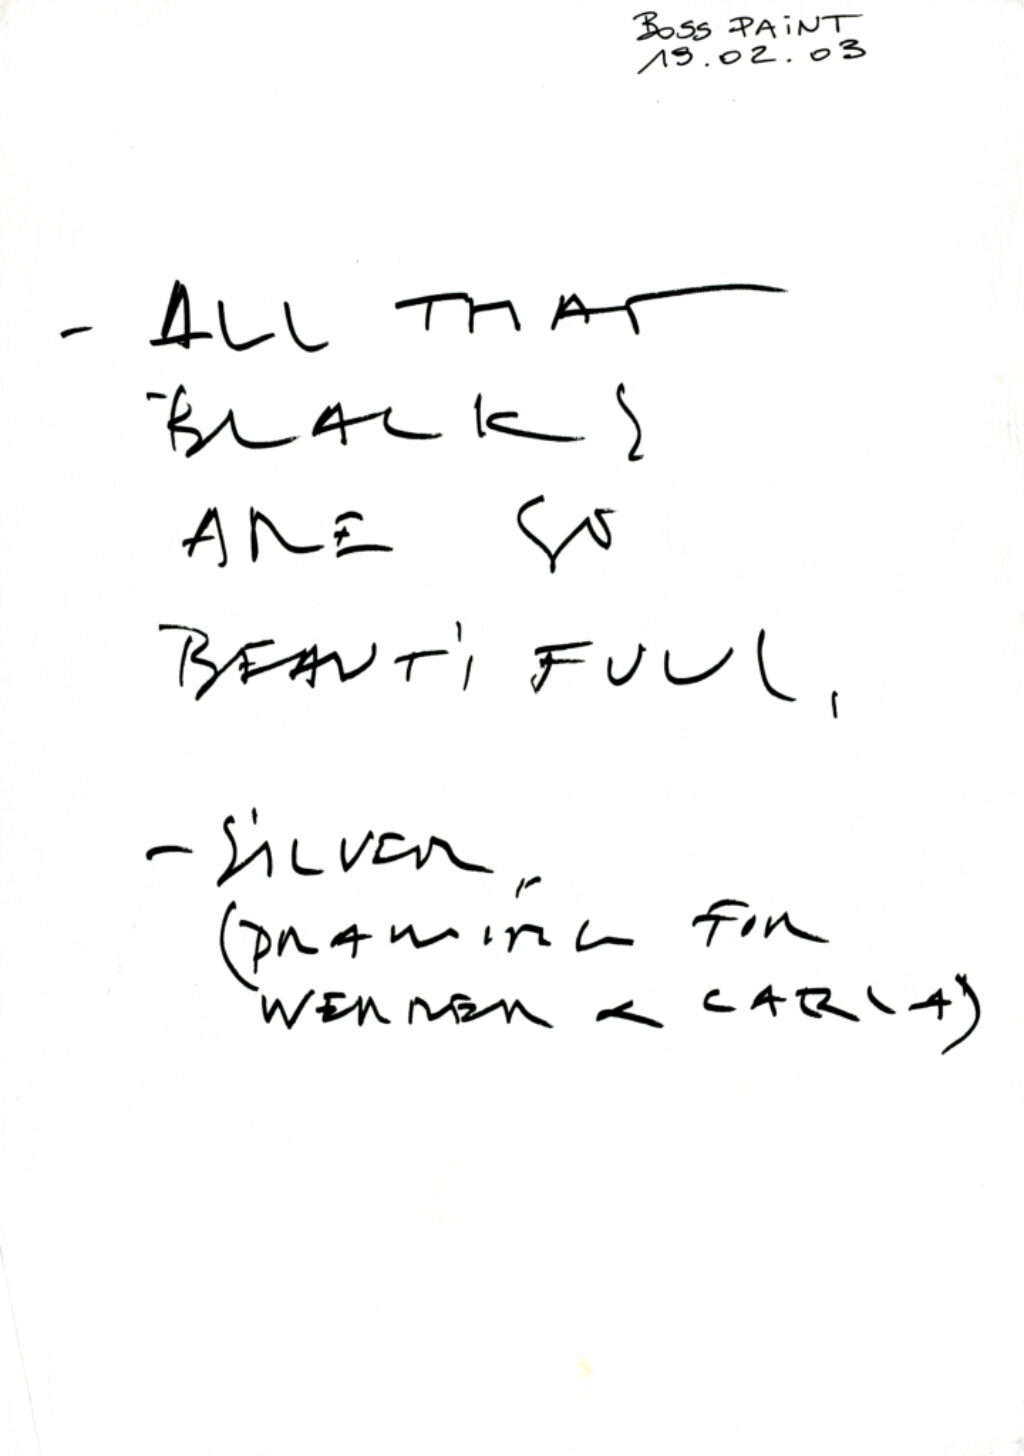 BOSS PAiNT
19.02.03
- ALL THAT
BLACKS
ARE SO
BEAUTiFULL,
- SiLVER,
(DRAWiNG FOR
WERNER & CARLA)